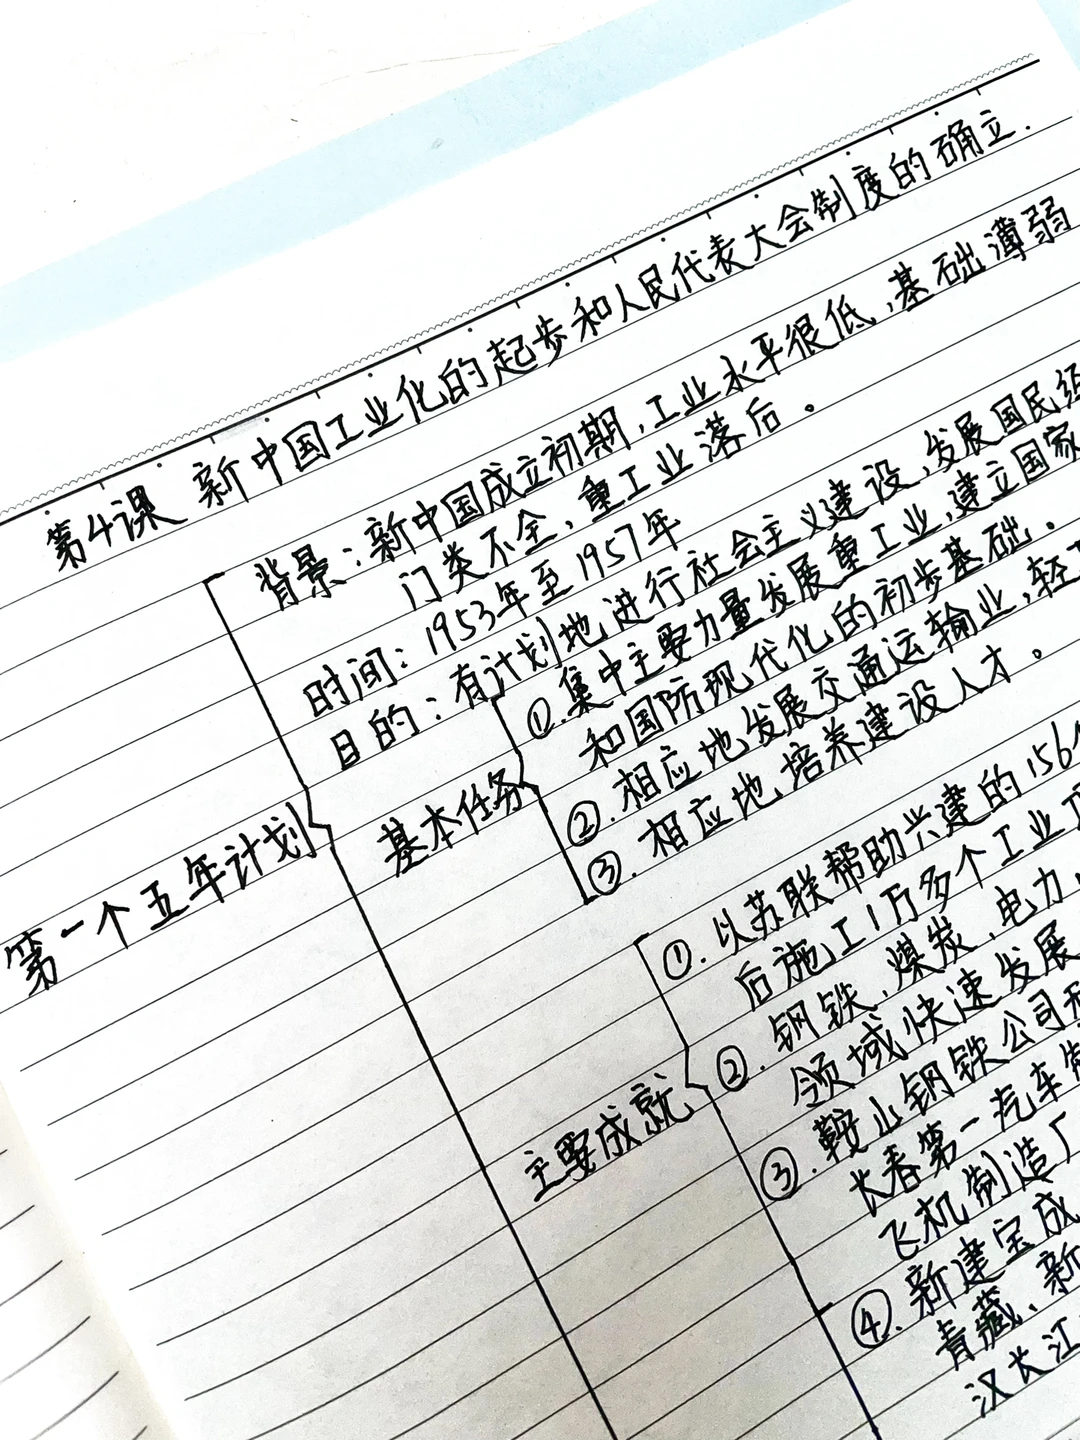 第4课 新中国工业化的起步和人民代表大会制度的确立.
背景：新中国成立初期，工业水平很低，基础薄弱
门类不全，重工业落后。
时间：1953年至1957年
目的：有计划地进行社会主义建设，发展国民经
第一个五年计划
基本任务
①.集中主要力量发展重工业，建立国家
和国防现代化的初步基础。
②.相应地发展交通运输业，轻工
③.相应地培养建设人才。
主要成就
①.以苏联帮助兴建的156个
后施工1万多个工业项
②.钢铁、煤炭、电力、
领域快速发展
③.鞍山钢铁公司
长春第一汽车制
飞机制造厂
④.新建宝成
青藏、新
汉长江